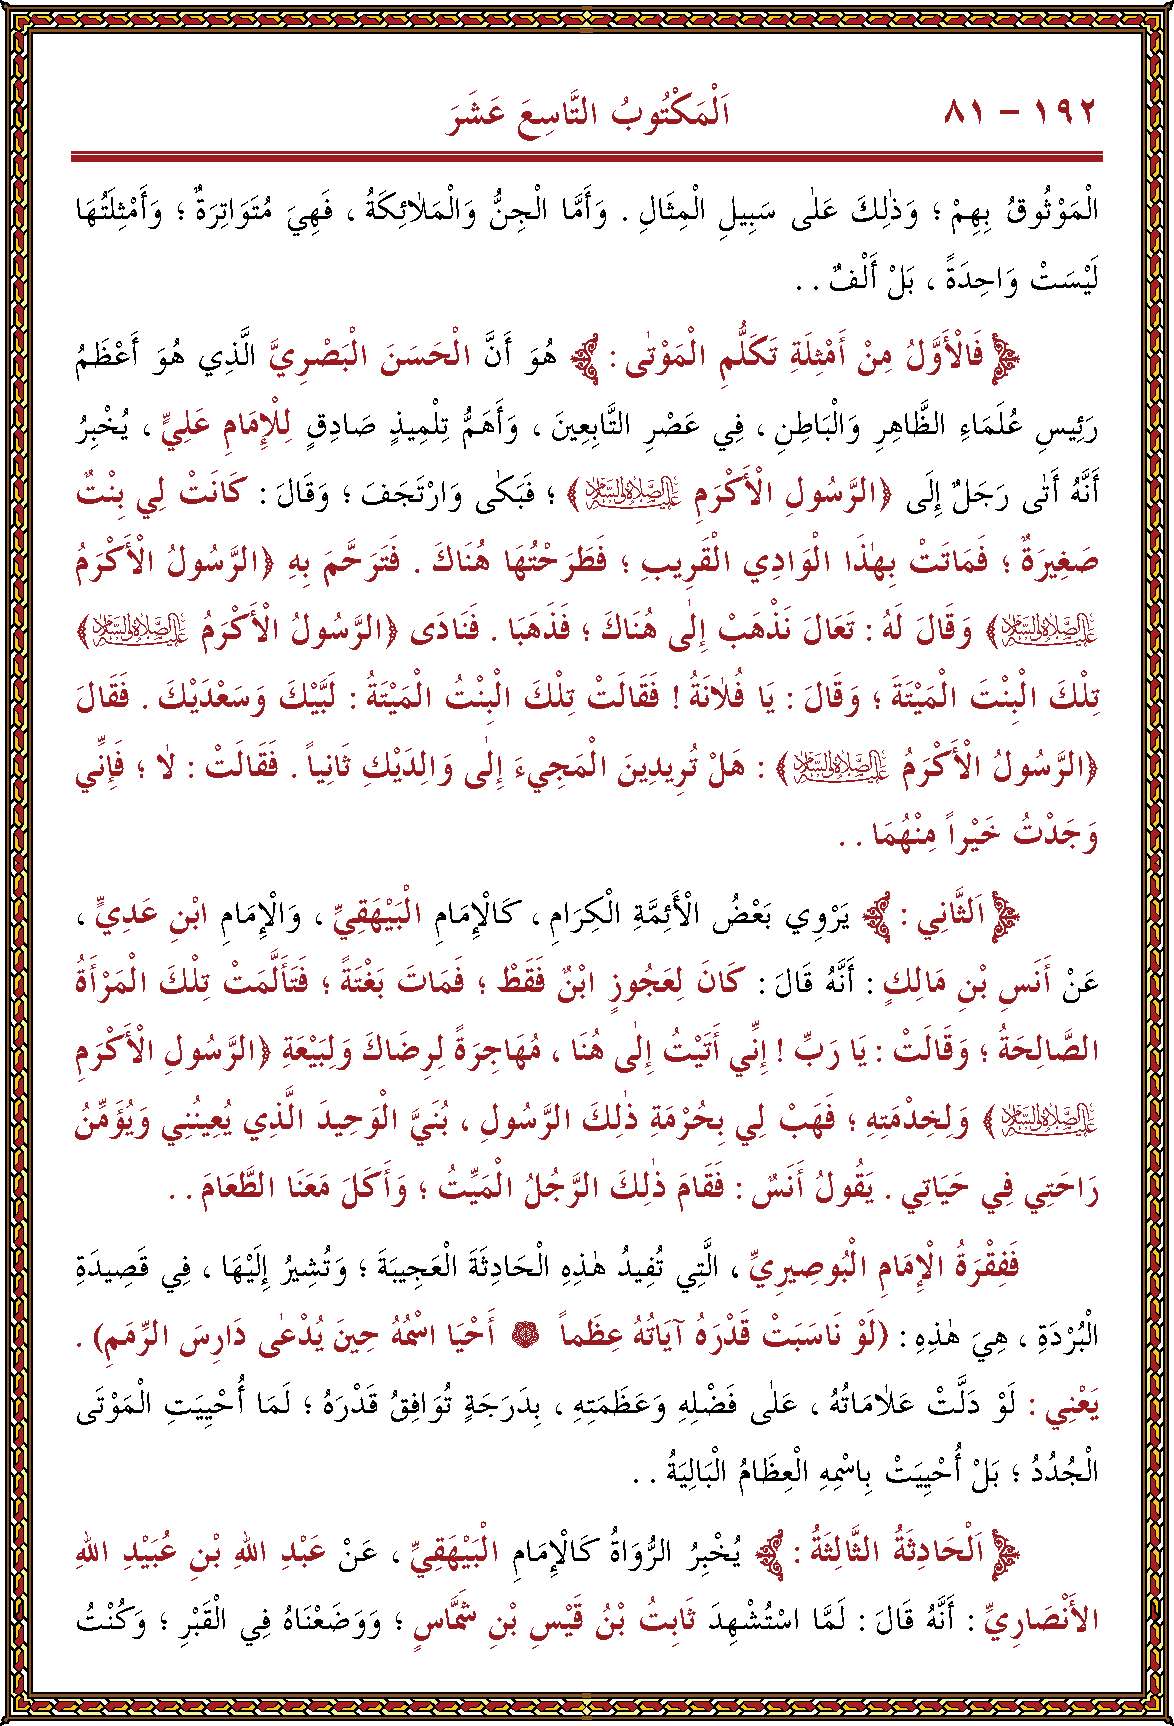 ١٩٢ – ٨١
اَلْمَكْتُوبُ التَّاسِعَ عَشَرَ
الْمَوْثُوقُ بِهِمْ ؛ وَذٰلِكَ عَلٰى سَبِيلِ الْمِثَالِ . وَأَمَّا الْجِنُّ وَالْمَلَائِكَةُ ، فَهِيَ مُتَوَاتِرَةٌ ؛ وَأَمْثِلَتُهَا
لَيْسَتْ وَاحِدَةً ، بَلْ أَلْفٌ . .
﴿ فَالْأَوَّلُ مِنْ أَمْثِلَةِ تَكَلُّمِ الْمَوْتٰى : ﴾ هُوَ أَنَّ الْحَسَنَ الْبَصْرِيَّ الَّذِي هُوَ أَعْظَمُ
رَئِيسِ عُلَمَاءِ الظَّاهِرِ وَالْبَاطِنِ ، فِي عَصْرِ التَّابِعِينَ ، وَأَهَمُّ تِلْمِيذٍ صَادِقٍ لِلْإِمَامِ عَلِيٍّ ، يُخْبِرُ
أَنَّهُ أَتٰى رَجَلٌ إِلَى ﴿الرَّسُولِ الْأَكْرَمِ عَلَيْهِ الصَّلَاةُ وَالسَّلَامُ﴾ ؛ فَبَكٰى وَارْتَجَفَ ؛ وَقَالَ : كَانَتْ لِي بِنْتٌ
صَغِيرَةٌ ؛ فَمَاتَتْ بِهٰذَا الْوَادِي الْقَرِيبِ ؛ فَطَرَحْتُهَا هُنَاكَ . فَتَرَحَّمَ بِهِ ﴿الرَّسُولُ الْأَكْرَمُ
عَلَيْهِ الصَّلَاةُ وَالسَّلَامُ﴾ وَقَالَ لَهُ : تَعَالَ نَذْهَبْ إِلٰى هُنَاكَ ؛ فَذَهَبَا . فَنَادَى ﴿الرَّسُولُ الْأَكْرَمُ عَلَيْهِ الصَّلَاةُ وَالسَّلَامُ﴾
تِلْكَ الْبِنْتَ الْمَيْتَةَ ؛ وَقَالَ : يَا فُلَانَةُ ! فَقَالَتْ تِلْكَ الْبِنْتُ الْمَيْتَةُ : لَبَّيْكَ وَسَعْدَيْكَ . فَقَالَ
﴿الرَّسُولُ الْأَكْرَمُ عَلَيْهِ الصَّلَاةُ وَالسَّلَامُ﴾ : هَلْ تُرِيدِينَ الْمَجِيءَ إِلٰى وَالِدَيْكِ ثَانِياً . فَقَالَتْ : لَا ؛ فَإِنِّي
وَجَدْتُ خَيْراً مِنْهُمَا . .
﴿ اَلثَّانِي : ﴾ يَرْوِي بَعْضُ الْأَئِمَّةِ الْكِرَامِ ، كَالْإِمَامِ الْبَيْهَقِيِّ ، وَالْإِمَامِ ابْنِ عَدِيٍّ ،
عَنْ أَنَسِ بْنِ مَالِكٍ : أَنَّهُ قَالَ : كَانَ لِعَجُوزٍ ابْنٌ فَقَطْ ؛ فَمَاتَ بَغْتَةً ؛ فَتَأَلَّمَتْ تِلْكَ الْمَرْأَةُ
الصَّالِحَةُ ؛ وَقَالَتْ : يَا رَبِّ ! إِنِّي أَتَيْتُ إِلٰى هُنَا ، مُهَاجِرَةً لِرِضَاكَ وَلِبَيْعَةِ ﴿الرَّسُولِ الْأَكْرَمِ
عَلَيْهِ الصَّلَاةُ وَالسَّلَامُ﴾ وَلِخِدْمَتِهِ ؛ فَهَبْ لِي بِحُرْمَةِ ذٰلِكَ الرَّسُولِ ، بُنَيَّ الْوَحِيدَ الَّذِي يُعِينُنِي وَيُؤَمِّنُ
رَاحَتِي فِي حَيَاتِي . يَقُولُ أَنَسٌ : فَقَامَ ذٰلِكَ الرَّجُلُ الْمَيِّتُ ؛ وَأَكَلَ مَعَنَا الطَّعَامَ . .
فَفِقْرَةُ الْاِمَامِ الْبُوصِيرِيِّ ، الَّتِي تُفِيدُ هٰذِهِ الْحَادِثَةَ الْعَجِيبَةَ ؛ وَتُشِيرُ إِلَيْهَا ، فِي قَصِيدَةِ
الْبُرْدَةِ ، هِيَ هٰذِهِ : (لَوْ نَاسَبَتْ قَدْرَهُ آيَاتُهُ عِظَماً ۞ أَحْيَا اسْمُهُ حِينَ يُدْعٰى دَارِسَ الرِّمَمِ) .
يَعْنِي : لَوْ دَلَّتْ عَلَامَاتُهُ ، عَلٰى فَضْلِهِ وَعَظَمَتِهِ ، بِدَرَجَةٍ تُوَافِقُ قَدْرَهُ ؛ لَمَا أُحْيِيَتِ الْمَوْتَى
الْجُدُدُ ؛ بَلْ أُحْيِيَتْ بِاسْمِهِ الْعِظَامُ الْبَالِيَةُ . .
﴿ اَلْحَادِثَةُ الثَّالِثَةُ : ﴾ يُخْبِرُ الرُّوَاةُ كَالْإِمَامِ الْبَيْهَقِيِّ ، عَنْ عَبْدِ اللهِ بْنِ عُبَيْدِ اللهِ
الْأَنْصَارِيِّ : أَنَّهُ قَالَ : لَمَّا اسْتُشْهِدَ ثَابِتُ بْنُ قَيْسِ بْنِ شَمَّاسٍ ؛ وَوَضَعْنَاهُ فِي الْقَبْرِ ؛ وَكُنْتُ